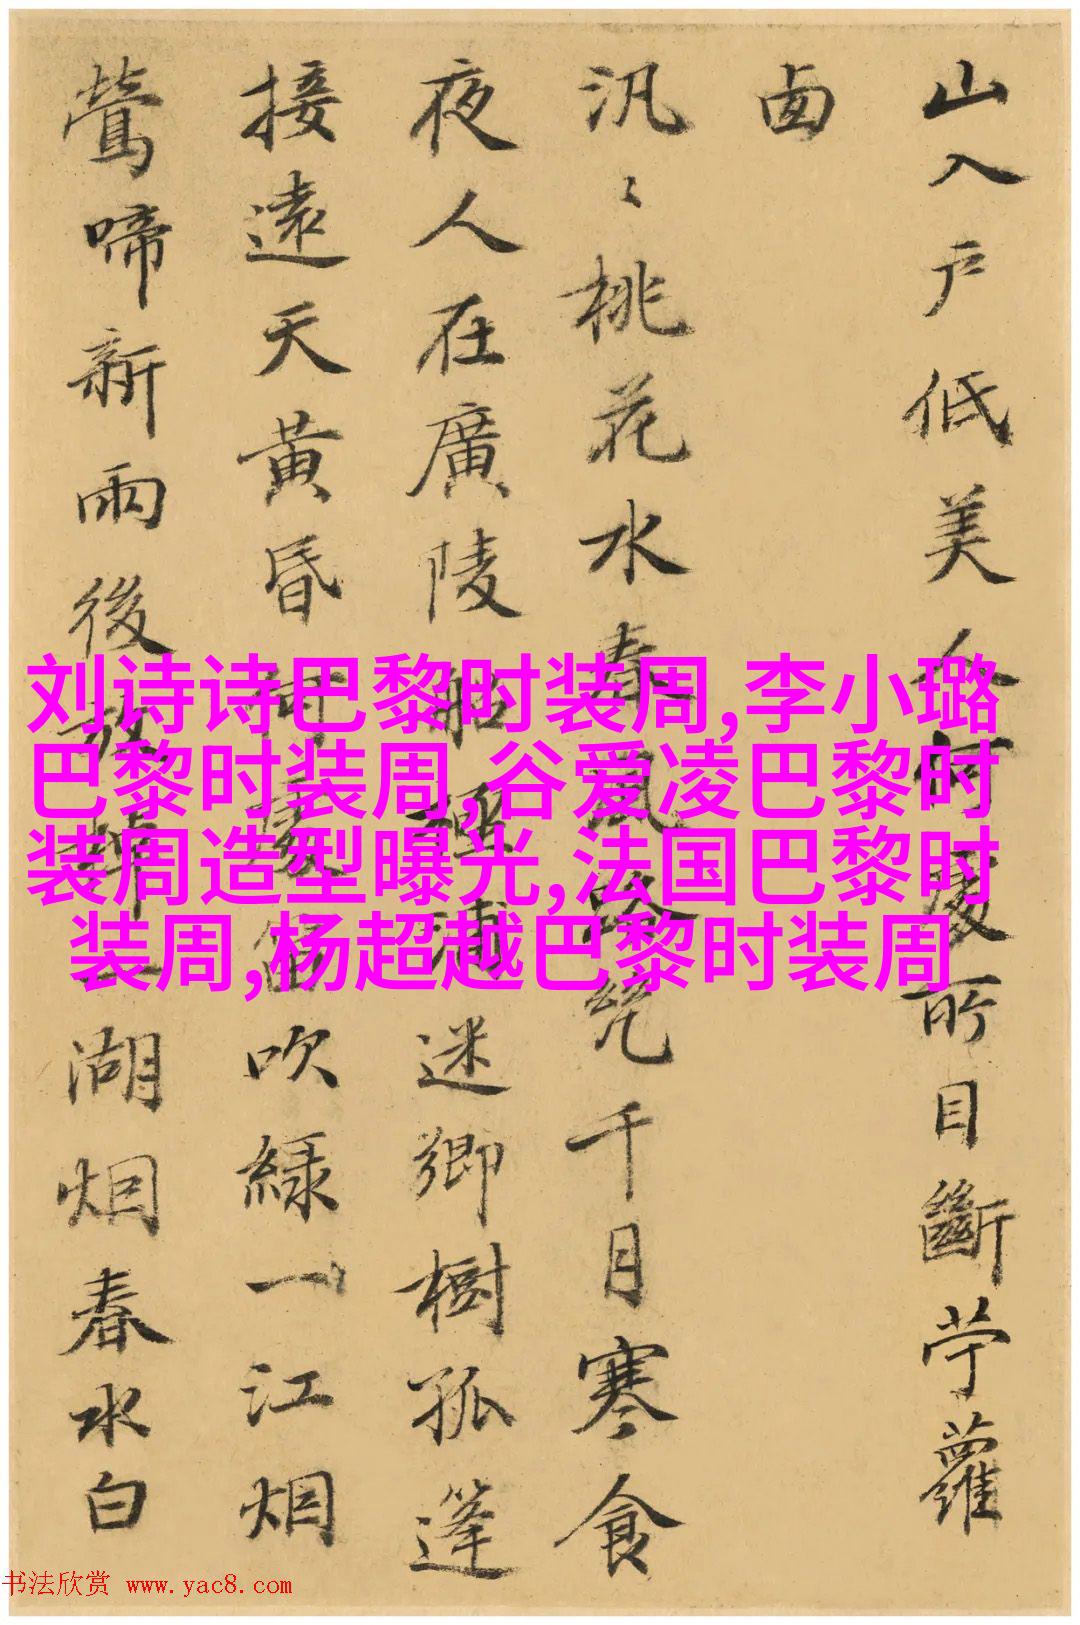 山入户低美人何處所目斷苧蘿
卥
汎〻桃花水春風路千月寒食
夜人在廣陵船極浦迷鄉樹孤蓬
接遠天黄昏何處笛吹緑一江烟
鶯啼新雨後放棹一湖烟春水白
刘诗诗巴黎时装周,李小璐
巴黎时装周,谷爱凌巴黎时
装周造型曝光,法国巴黎时
装周,杨超越巴黎时装周
书法欣赏 www.yac8.com